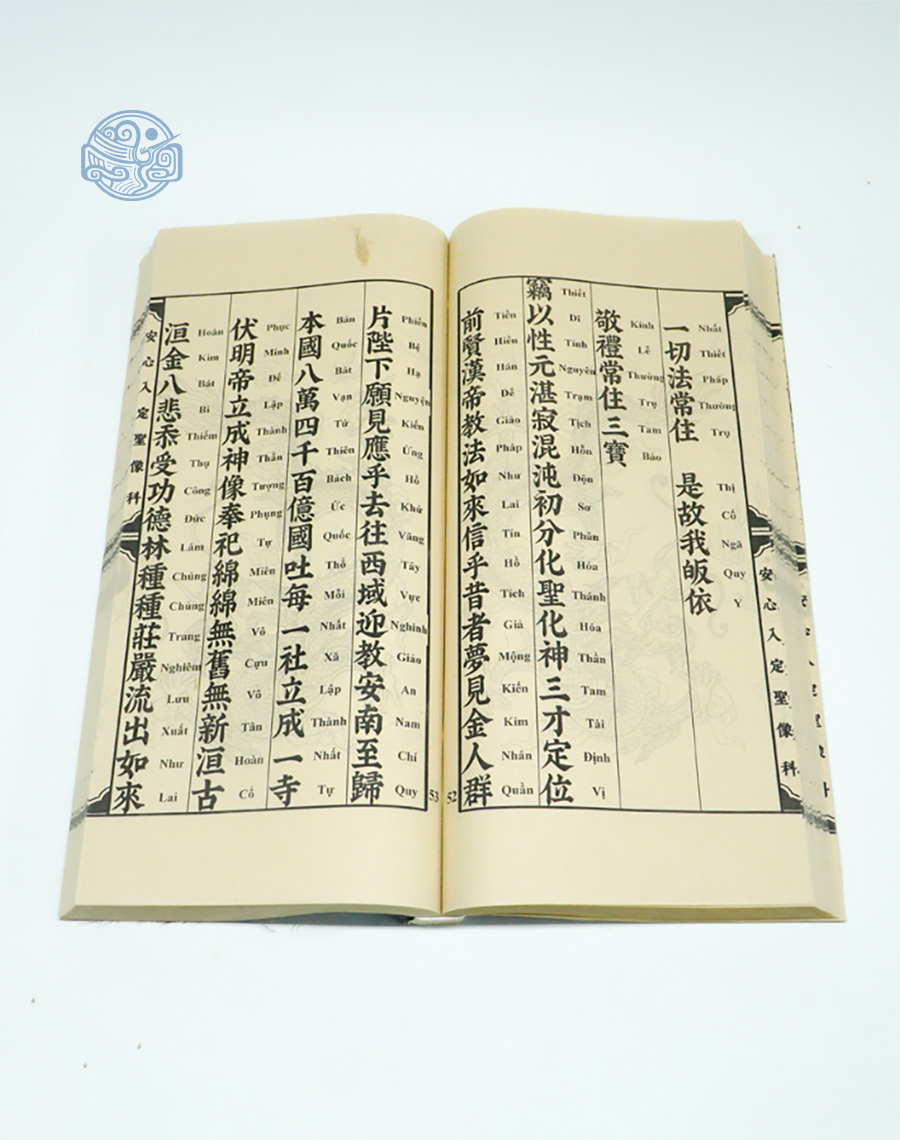 安心入定聖像科
一切法常住 是故我皈依
Nhất Thiết Pháp Thường Trụ Thị Cố Ngã Quy Y
敬禮常住三寶
Kính Lễ Thường Trụ Tam Bảo
竊以性元湛寂混沌初分化聖化神三才定位
Thiết Dĩ Tính Nguyên Trạm Tịch Hỗn Độn Sơ Phân Hóa Thánh Hóa Thần Tam Tài Định Vị
前賢漢帝教法如來信乎昔者夢見金人群
Tiền Hiền Hán Đế Giáo Pháp Như Lai Tín Hồ Tích Giả Mộng Kiến Kim Nhân Quần
52
53
片陛下願見應乎去往西域迎教安南至歸
Phiến Bệ Hạ Nguyện Kiến Ứng Hồ Khứ Vãng Tây Vực Nghinh Giáo An Nam Chí Quy
本國八萬四千百億國吐每一社立成一寺
Bản Quốc Bát Vạn Tứ Thiên Bách Ức Quốc Thổ Mỗi Nhất Xã Lập Thành Nhất Tự
伏明帝立成神像奉祀綿綿無舊無新洹古
Phục Minh Đế Lập Thành Thần Tượng Phụng Tự Miên Miên Vô Cựu Vô Tân Hoàn Cổ
洹金八悲忝受功德林種種莊嚴流出如來
Hoàn Kim Bát Bi Thiểm Thụ Công Đức Lâm Chủng Chủng Trang Nghiêm Lưu Xuất Như Lai
安心入定聖像科